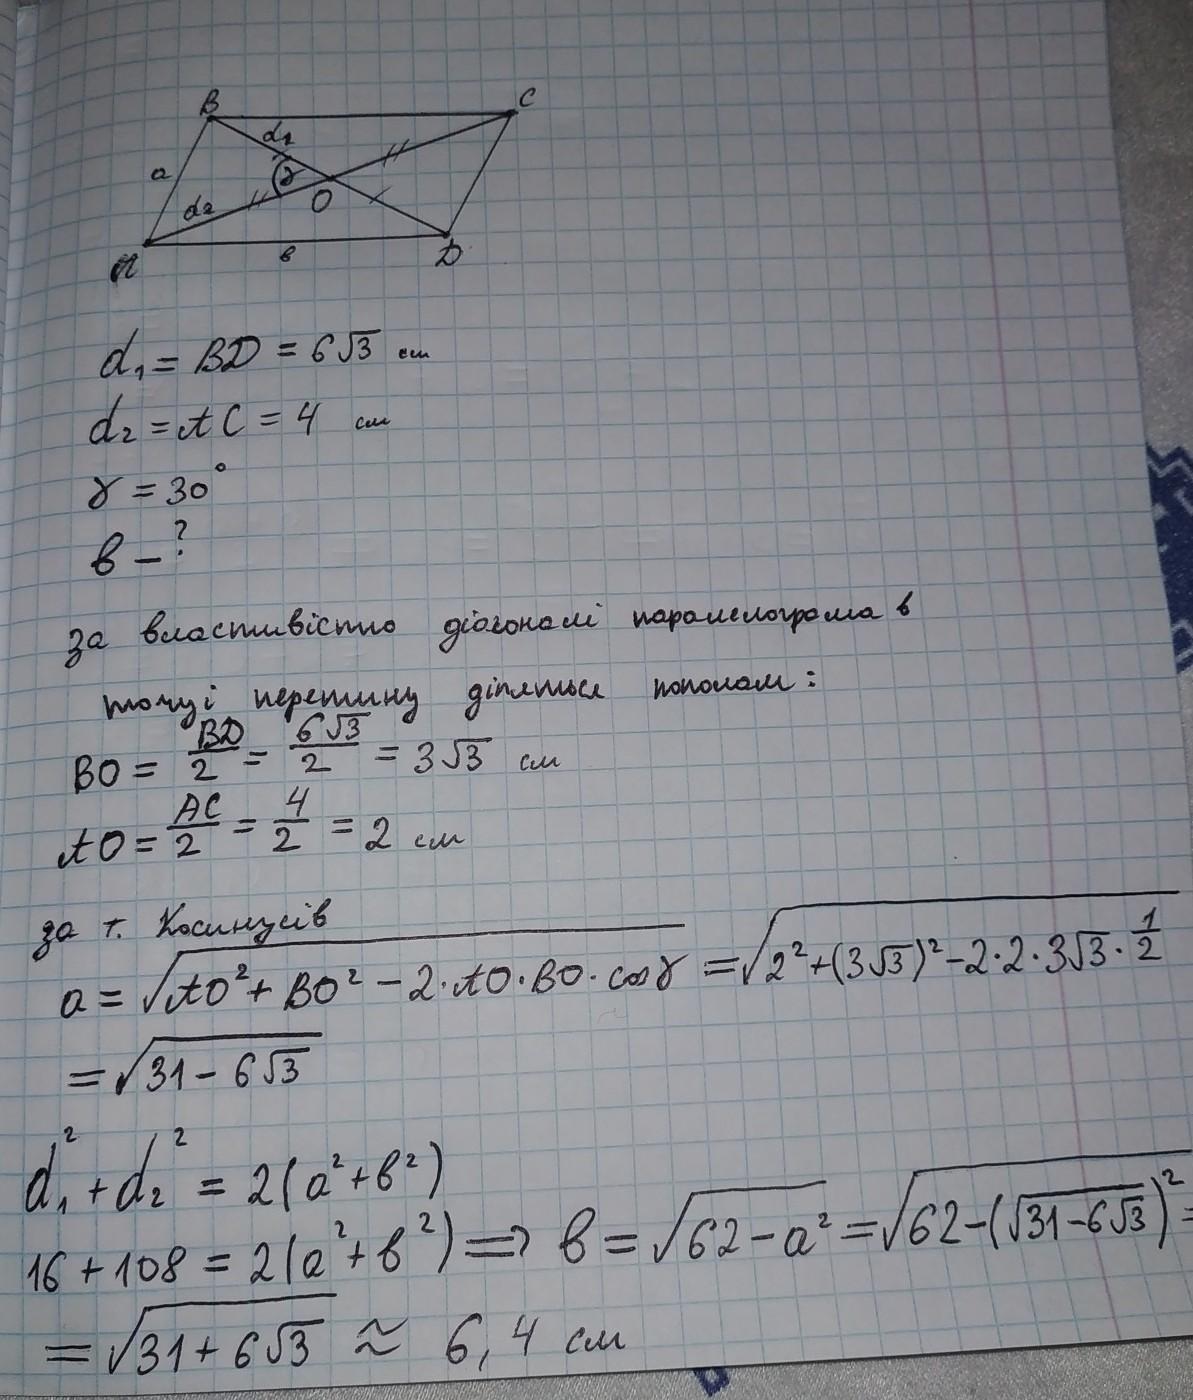 B
C
d₁
a
γ
d₂
O
A
в
D
d₁ = BD = 6√3 см
d₂ = AC = 4 см
γ = 30°
в – ?
за властивістю діагоналі паралелограма в
точці перетину діляться пополам:
BO = BD/2 = 6√3/2 = 3√3 см
AO = AC/2 = 4/2 = 2 см
за т. Косинусів
a = √(AO² + BO² – 2·AO·BO·cosγ) = √(2² + (3√3)² – 2·2·3√3·1/2)
= √(31 – 6√3)
d₁² + d₂² = 2(a² + в²)
16 + 108 = 2(a² + в²) => в = √(62 – a²) = √(62 – (√(31 – 6√3))²) =
= √(31 + 6√3) ≈ 6,4 см